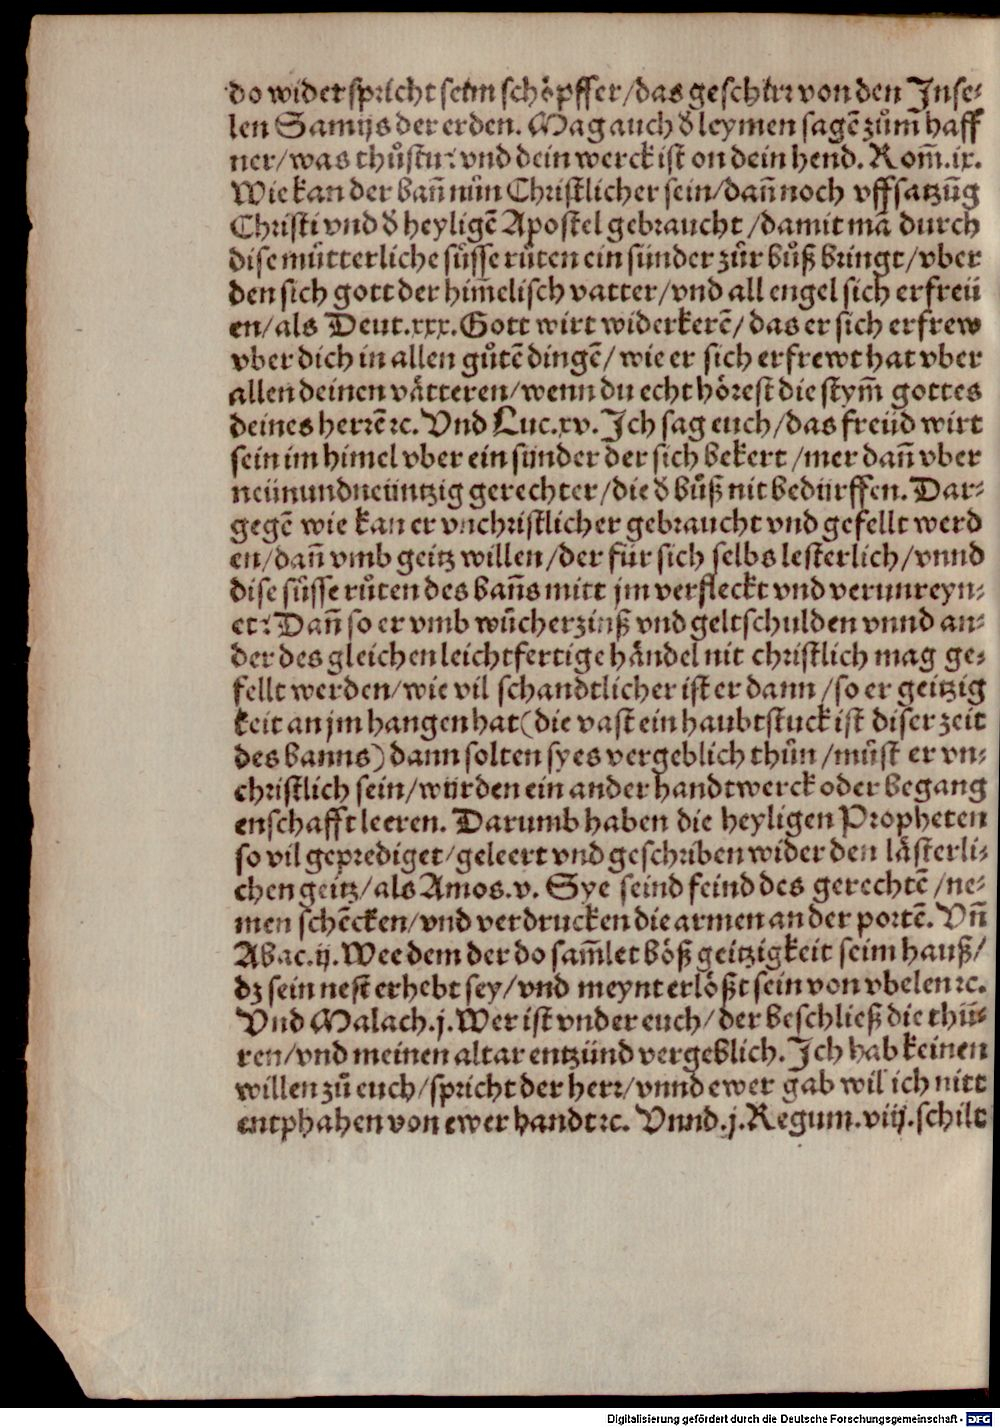 do widerspricht seim schöpffer/das geschirr von den Inse⸗
len Samijs der erden. Mag auch d̕ leymen sagē zům̄ haff
ner/was thůstu? vnd dein werck ist on dein hend. Rom̄.ix.
Wie kan der bañ nůn Christlicher sein/dañ noch vffsatzūg
Christi vnd d̕ heyligē Apostel gebraucht/damit mā durch
dise můtterliche sůsse růten ein sünder zůr bůß bringt/vber
den sich gott der him̄elisch vatter/vnd all engel sich erfreü
en/als Deut.xxx. Gott wirt widerkerē/das er sich erfrew
vber dich in allen gůtē dingē/wie er sich erfrewt hat vber
allen deinen vätteren/wenn du echt hörest die stym̄ gottes
deines herrē ꝛc. Vnd Luc.xv. Ich sag euch/das freüd wirt
sein im himel vber ein sünder der sich bekert/mer dañ vber
neünundneüntzig gerechter/die d̕ bůß nit bedürffen. Dar⸗
gegē wie kan er vnchristlicher gebraucht vnd gefellt werd
en/dañ vmb geitz willen/der für sich selbs lesterlich/vnnd
dise süsse růten des bañs mitt jm verfleckt vnd verunreyn⸗
et? Dañ so er vmb wůcherzinß vnd geltschulden vnnd an⸗
der des gleichen leichtfertige händel nit christlich mag ge⸗
fellt werden/wie vil schandtlicher ist er dann/so er geitzig
keit an jm hangen hat(die vast ein haubtstuck ist diser zeit
des banns) dann solten sy es vergeblich thůn/můst er vn⸗
christlich sein/würden ein ander handtwerck oder begang
enschafft leeren. Darumb haben die heyligen Propheten
so vil geprediget/geleert vnd geschriben wider den lästerli⸗
chen geitz/als Amos.v. Sye seind feind des gerechtē/ne⸗
men schēcken/vnd verdrucken die armen an der portē. Vñ
Abac.ij. Wee dem der do sam̄let böß geitzigkeit seim hauß/
dz sein nest erhebt sey/vnd meynt erlößt sein von vbelen ꝛc.
Vnd Malach.j. Wer ist vnder euch/der beschließ die thü⸗
ren/vnd meinen altar entzünd vergeblich. Ich hab keinen
willen zů euch/spricht der herr/vnnd ewer gab wil ich nitt
entphahen von ewer handt ꝛc. Vnnd.j.Regum.viij.schilt
Digitalisierung gefördert durch die Deutsche Forschungsgemeinschaft - DFG